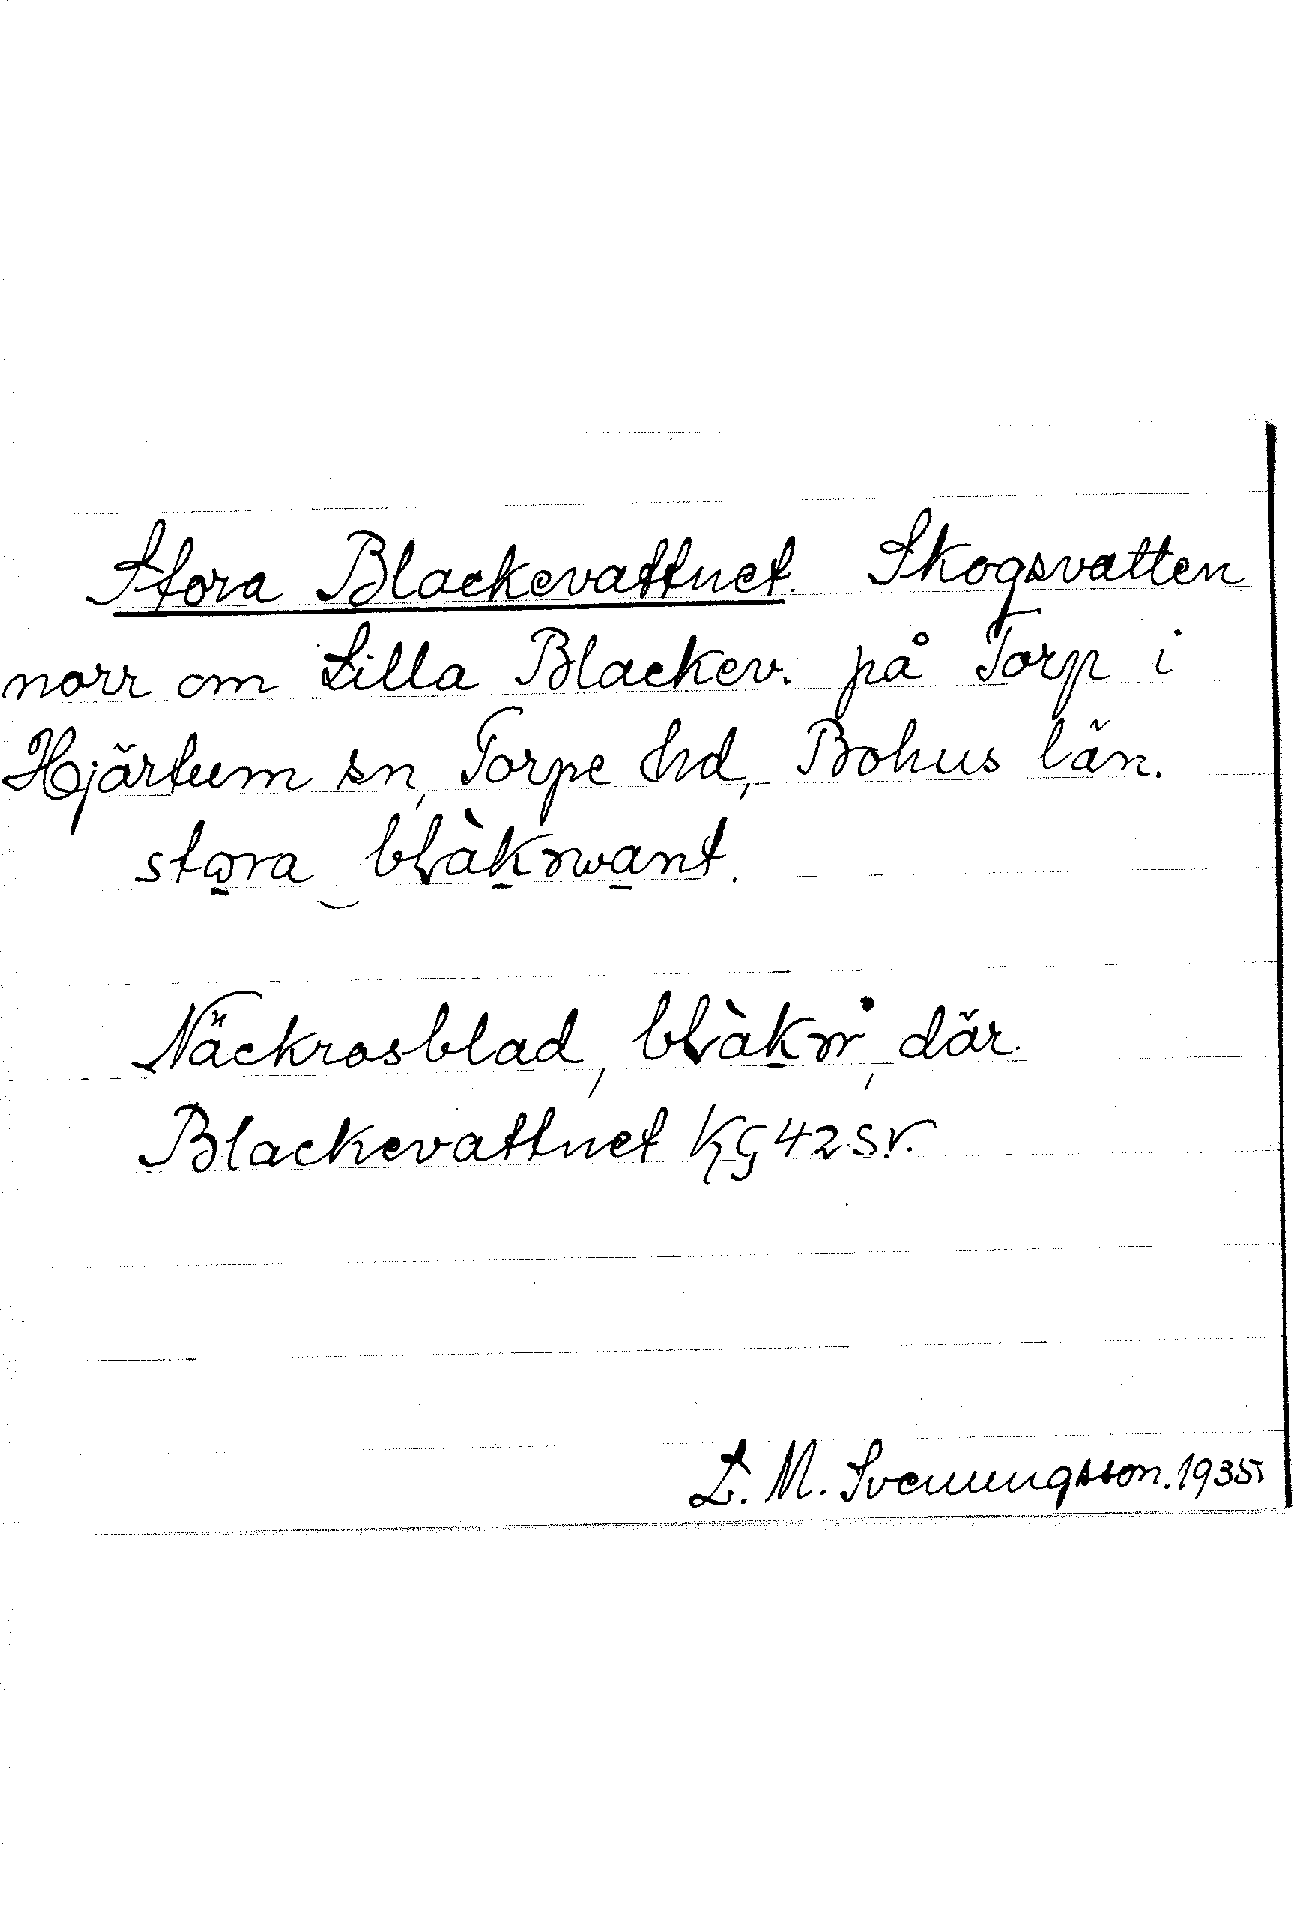 Stora Blackevattnet. Skogsvatten
norr om Lilla Blackev. på Torp i
Hjärtum sn, Torpe hd, Bohus län.
Näckrosblad, där.
Blackevattnet KG 42 SV.
L. M. Svenungsson. 1935